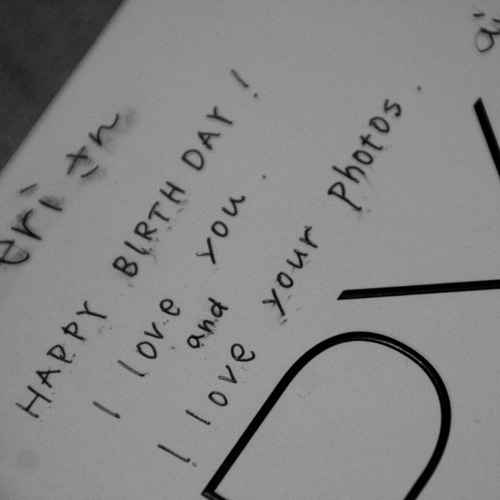 HAPPY BIRTHDAY!
I love you.
and
I love your photos.